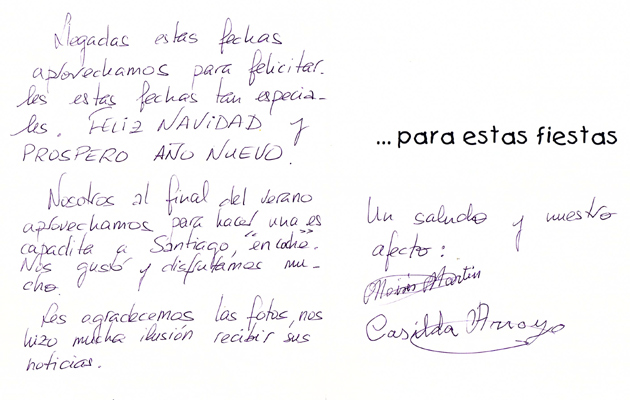 Llegadas estas fechas
aprovechamos para felicitar-
les estas fechas tan especia-
les. FELIZ NAVIDAD y
PROSPERO AÑO NUEVO.
Nosotros al final del verano
aprovechamos para hacer una es
capadita a Santiago, "en coche".
Nos gustó y disfrutamos mu-
cho.
Les agradecemos las fotos, nos
hizo mucha ilusión recibir sus
noticias.
...para estas fiestas
Un saludo y nuestro
afecto:
Martin
Casilda Arroyo